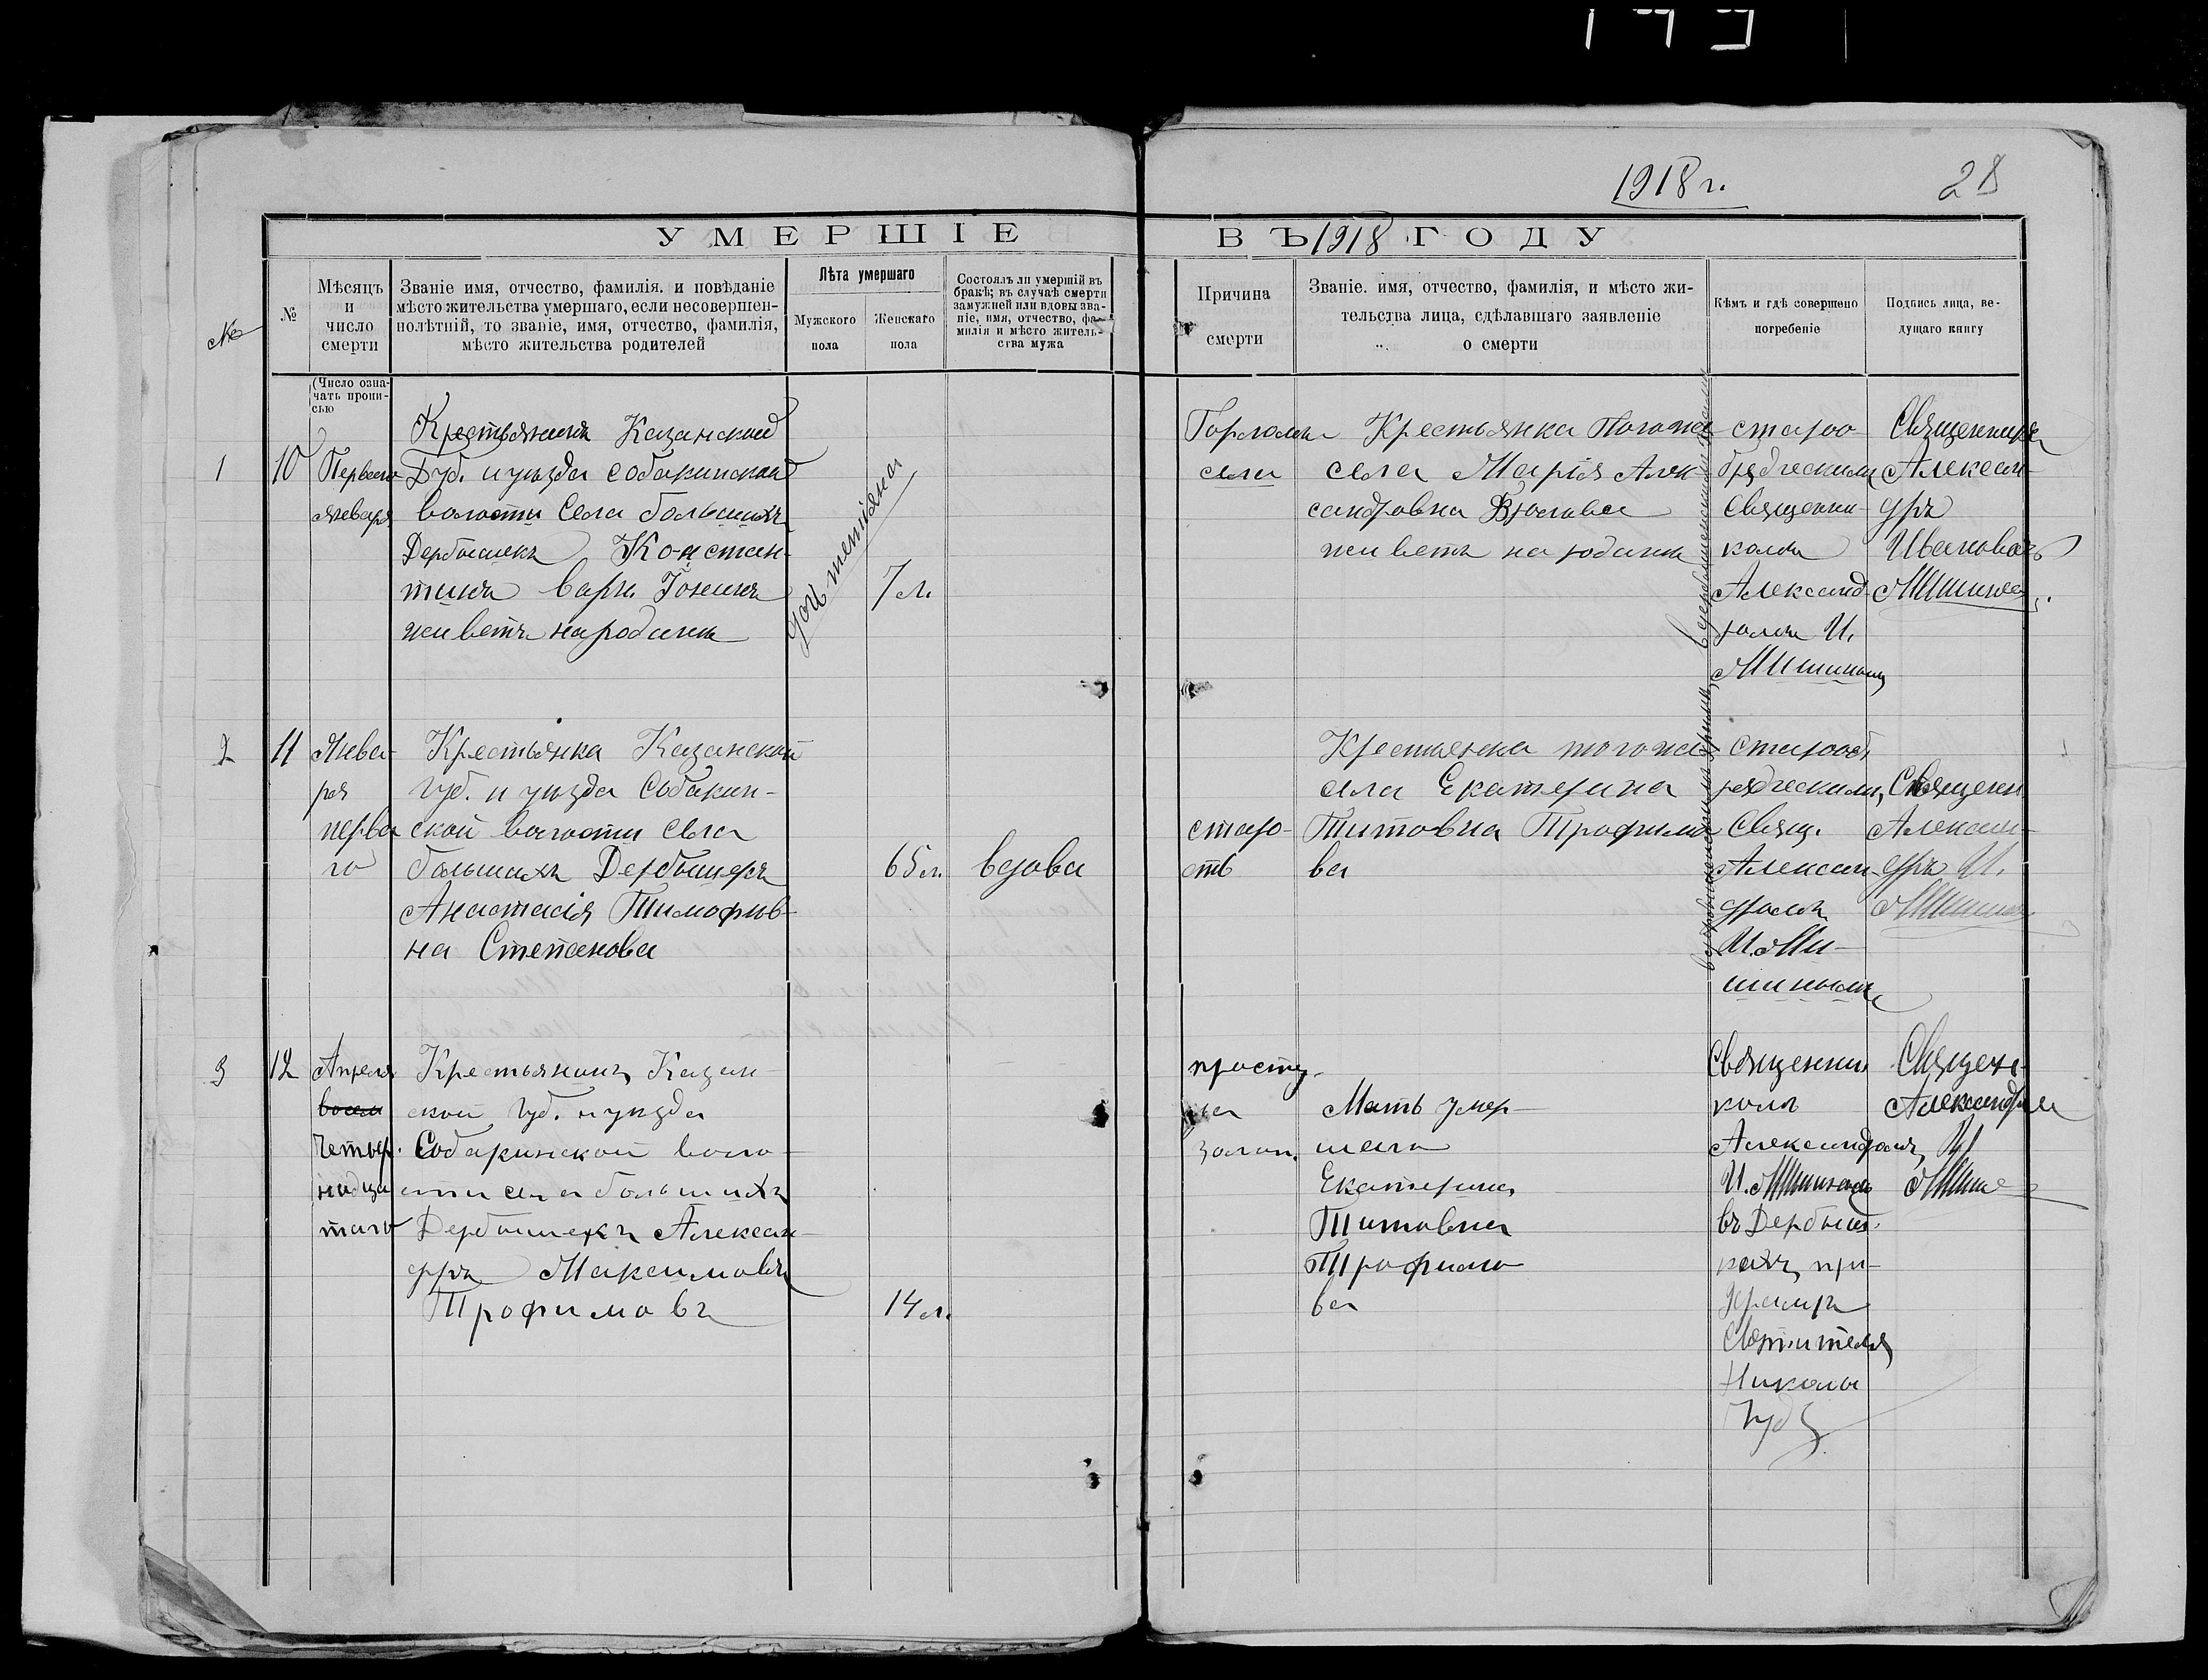 1918 г.
28
УМЕРШІЕ
ВЪ 1918 ГОДУ
№
№
Мѣсяцъ
и
число
смерти
Званіе имя, отчество, фамилія. и повѣданіе
мѣсто жительства умершаго, если несовершен-
нолѣтній, то званіе, имя, отчество, фамилія,
мѣсто жительства родителей
Лѣта умершаго
Мужского
пола
Женскаго
пола
Состоялъ ли умершій въ
бракѣ; въ случаѣ смерти
замужней или вдовы зва-
ніе, имя, отчество, фа-
милія и мѣсто житель-
ства мужа
Причина
смерти
Званіе. имя, отчество, фамилія, и мѣсто жи-
тельства лица, сдѣлавшаго заявленіе
о смерти
Кѣмъ и гдѣ совершено
погребеніе
Подпись лица, ве-
дущаго книгу
(Число озна-
чать пропи-
сью
1
10
Перваго
января
Крестьянинъ Казанской
Губ. и уѣзда Собакинской
волости Села больших
Дербышекъ Констан-
тинъ
живетъ на родинѣ
7 л.
Крестьянка
села Марія Алек-
сандровна
живетъ на родинѣ
старо-
Священни-
комъ
Александ-
ромъ И.
Мишинымъ
Священникъ
Алексан-
дръ
Ивановъ
Мишинъ
2
11
Янва-
ря
перва
го
Крестьянка Казанской
Губ. и уѣзда Собакин-
ской волости Села
большихъ Дербышекъ
Анастасія Тимофѣв-
на Степанова
65 л.
вдова
старо-
сть
Крестьянка тогоже
села Екатерина
Титовна Трофимо
ва
старооб
рядческимъ
Свящ.
Алексан-
дромъ
И. Ми-
шинымъ
Священ
Алексан-
дръ И.
Мишинъ
3
12
Апреля
восем
четыр.
надца
таго
Крестьянинъ Казан-
ской Губ. и уѣзда
Собакинской воло-
сти села большихъ
Дербышекъ Алексан-
дръ Максимовъ
Трофимовъ
14 л.
просту-
Мать умер-
шаго
Екатерина
Титовна
Трофимо
ва
Священни
комъ
Александромъ
И. Мишинымъ
въ Дербыш.
кахъ при
Святителя
Николы
Чуд.
Священ-
Александръ
И
Мишинъ